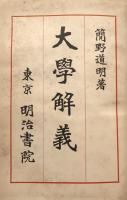 簡野道明著
大學解義
東京 明治書院